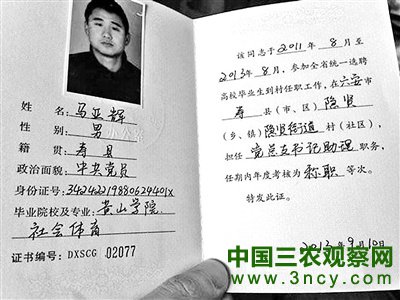 姓名:马亚辉
性别:男
籍贯:寿县
政治面貌:中共党员
身份证号:34242219880624401X
毕业院校及专业:黄山学院
社会体育
证书编号:DXSCG 02077
该同志于2011年8月至
2013年8月,参加全省统一选聘
高校毕业生到村任职工作,在六安市
寿县(市、区)隐贤
(乡、镇)隐贤街道村(社区),
担任党总支书记助理职务,
任期内年度考核为称职等次。
特发此证。
2013年9月10日
中国三农观察网
www.3ncy.com